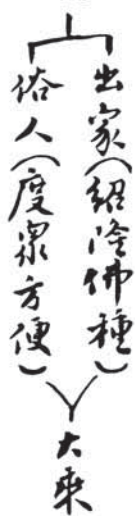 出家(紹隆佛種)
俗人(度眾方便)
大乘